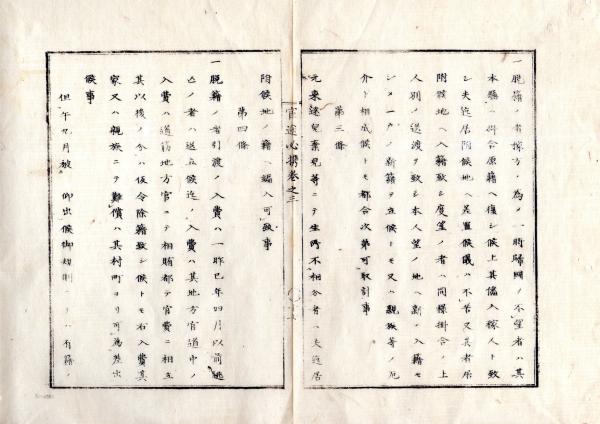 一脱籍ノ者稼方ノ為メ一時帰国ノ不望者ハ其
本縣ヘ掛合原籍ヘ復シ候上其儘入稼人ト致
シ夫迄居附候地ヘ差置候儀ハ不苦又其者居
附候地ヘ入籍致シ度望ノ者ハ同様掛合ノ上
人別ノ送渡ヲ致シ本人望ノ地ヘ新ノ入籍セ
シメ一戸ノ新籍ヲ立候トモ又ハ親族等ノ厄
介ト相成候トモ都合次第可取引事
第三條
元来迷兒棄兒等ニテ生所不相分者ハ夫迄居
官途必携巻之三
附候地ノ籍ヘ編入可致事
第四條
一脱籍ノ者引渡ノ入費ハ一昨巳年四月以前逃
亡ノ者ハ返立候迄ノ入費ハ其地方官道中ノ
入費ハ道筋地方官ニテ相賄都テ官費ニ相立
其以後ノ分ハ仮令除籍致シ候トモ右入費其
家又ハ親族ニテ難償ハ其村町ヨリ可為差出
候事
但午九月被 仰出候御規則ノハ有籍ノ